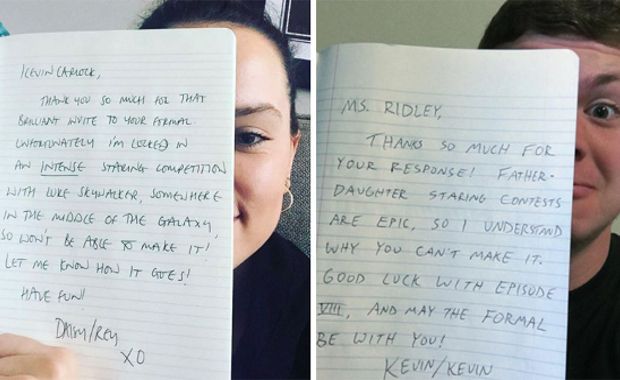 KEVIN CARLOCK,
THANK YOU SO MUCH FOR THAT
BRILLIANT INVITE TO YOUR FORMAL.
UNFORTUNATELY I'M LOCKED IN
AN INTENSE STARING COMPETITION
WITH LUKE SKYWALKER, SOMEWHERE
IN THE MIDDLE OF THE GALAXY,
SO WON'T BE ABLE TO MAKE IT!
LET ME KNOW HOW IT GOES!
HAVE FUN!
DAISY/REY
XO
MS. RIDLEY,
THANKS SO MUCH FOR
YOUR RESPONSE! FATHER-
DAUGHTER STARING CONTESTS
ARE EPIC, SO I UNDERSTAND
WHY YOU CAN'T MAKE IT.
GOOD LUCK WITH EPISODE
VIII, AND MAY THE FORMAL
BE WITH YOU!
KEVIN/KEVIN